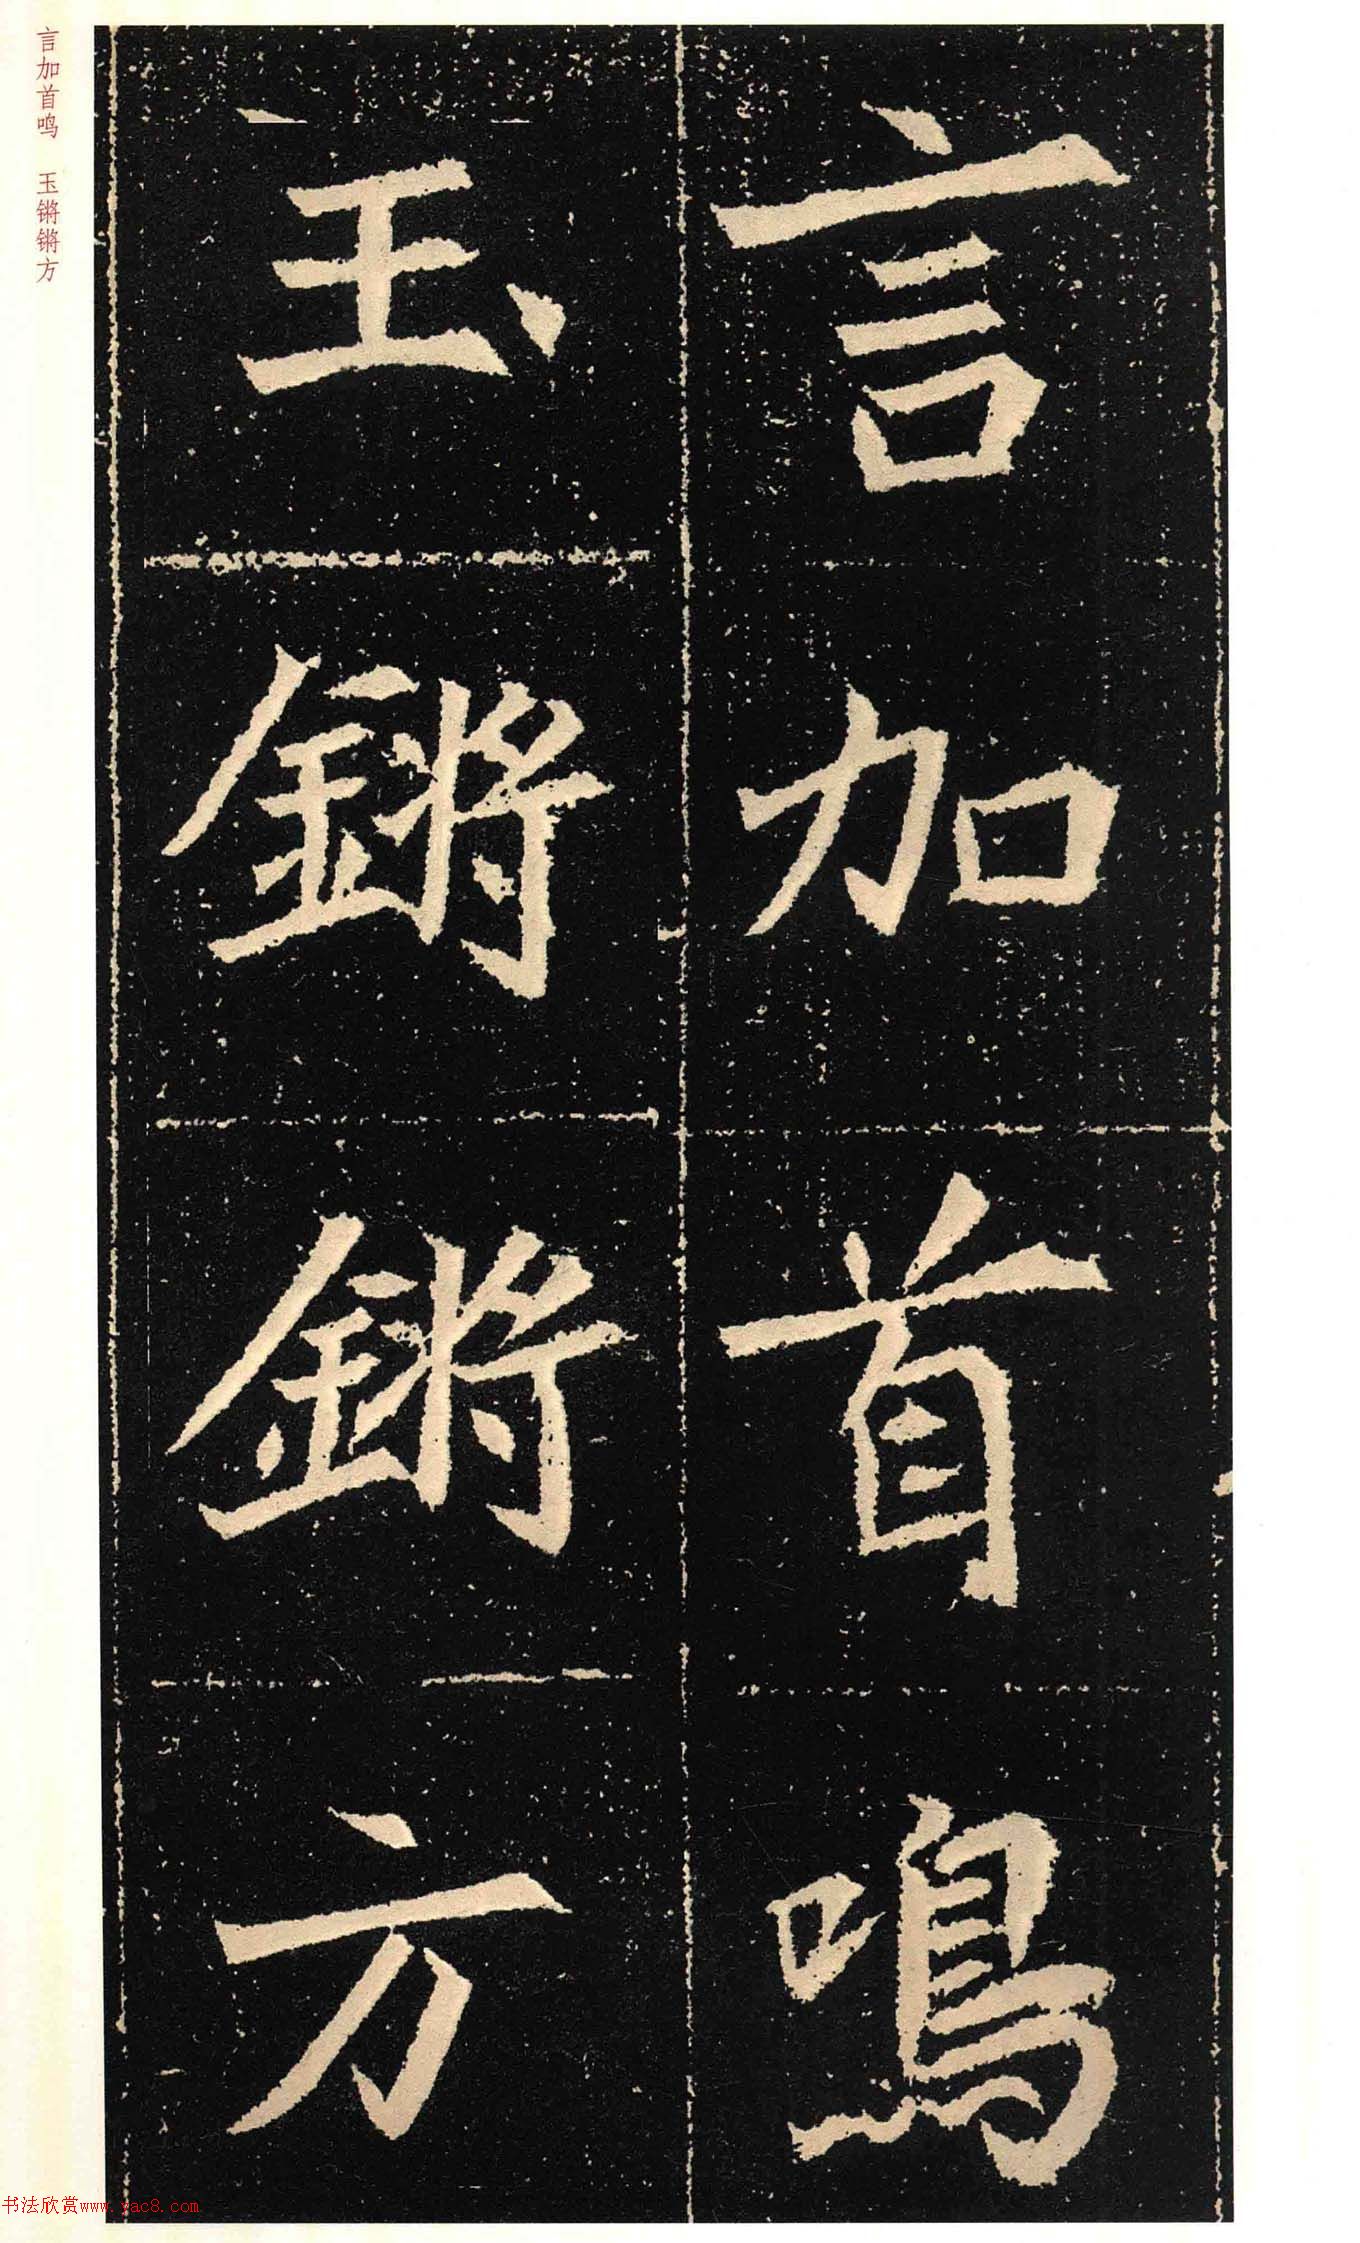 言加首鳴
玉鏘鏘方
言加首鸣 玉锵锵方
书法欣赏www.yac8.com